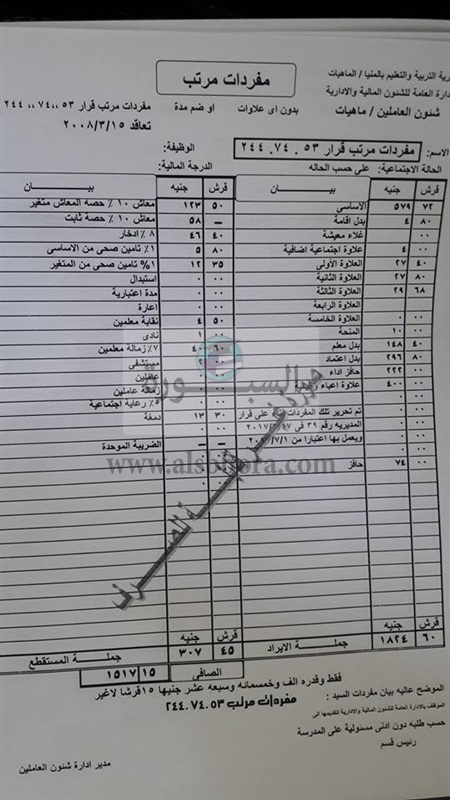 رية التربية والتعليم بالمنيا / الماهيات
دارة العامة للشئون المالية والادارية
شئون العاملين / ماهيات
مفردات مرتب
بدون اى علاوات او ضم مدة
مفردات مرتب قرار ٥٣ ،٧٤،، ٢٤٤
تعاقد ٢٠٠٨/٣/١٥
الاسم: مفردات مرتب قرار ٥٣ . ٧٤ . ٢٤٤
الوظيفة:
الحالة الاجتماعية: على حسب الحاله
الدرجة المالية:
قرش جنيه بيـــــان
٧٢ ٥٧٩ الاساسى
٨٠ ٤ بدل اقامة
٠٠ غلاء معيشة
٠٠ ٤ علاوة اجتماعية اضافية
٤٠ ٢٧ العلاوة الأولى
٨٠ ٢٧ العلاوة الثانية
٦٨ ٢٩ العلاوة الثالثة
العلاوة الرابعة
العلاوة الخامسة
٠٠ ١٠ المنحة
٤٠ ١٤٨ بدل معلم
٨٠ ٢٩٦ بدل اعتماد
٠٠ ٢٢٢ حافز اداء
٠٠ ٤٠٠ علاوة اعباء
تم تحرير تلك المفردات بناء على قرار
المديريه رقم ٣٩ فى
ويعمل بها اعتبارا من
٠٠ ٧٤ حافز
٦٠ ١٨٢٤ جملـــــة الايراد
قرش جنيه بيـــــان
٥٠ ١٢٣ معاش ١٠ ٪ حصه المعاش متغير
ــ ٥٨ معاش ١٠ ٪ حصة ثابت
٤٠ ٤٦ ٨٪ ادخار
٨٠ ٥ ١٪ تامين صحى من الاساسى
٣٥ ١٢ ١٪ تامين صحى من المتغير
٠٠ ٠ استبدال
٠٠ ٠ مدة اعتبارية
٠٠ ٠ اعارة
٥٠ ٤ نقابة معلمين
٠٠ ١ نادى
٦٠ ٤٠ ٧٪ زمالة معلمين
مستشفى
عاملين
زمالة عاملين
٥٪ رعاية اجتماعية
٣٠ ١٣ دمغة
ــ ــ الضريبة الموحدة
٤٥ ٣٠٧ جملـــــة المستقطع
الصافى ١٥ ١٥١٧
فقط وقدره الف وخمسمائه وسبعه عشر جنيها ١٥ قرشا لاغير
الموضح عاليه بيان مفردات السيد : مفردات مرتب ٥٣ .٧٤ .٢٤٤
الموظف بالادارة العامة للشئون المالية والادارية لتقديمها الى
حسب طلبه دون ادنى مسئولية على المدرسة
رئيس قسم
مدير ادارة شئون العاملين
السبورة
www.alsobora.com